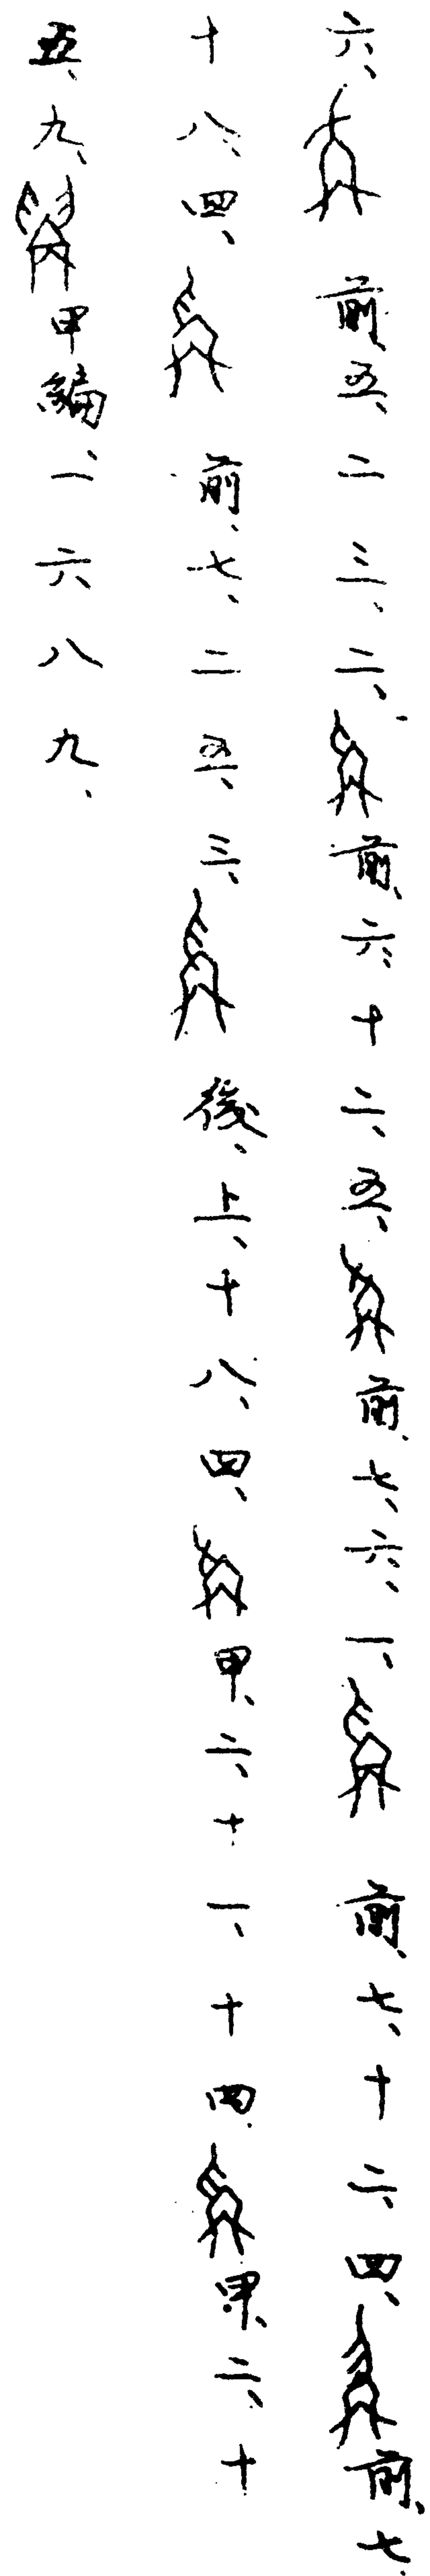 六、前五、二三、二、前、六、十二、五、前、七、六、一、前、七、十二、四、前、七、
十八、四、前、七、二五、三、後、上、十八、四、甲、二、十一、十四、甲、二、十
五、九、甲編、一六八九、